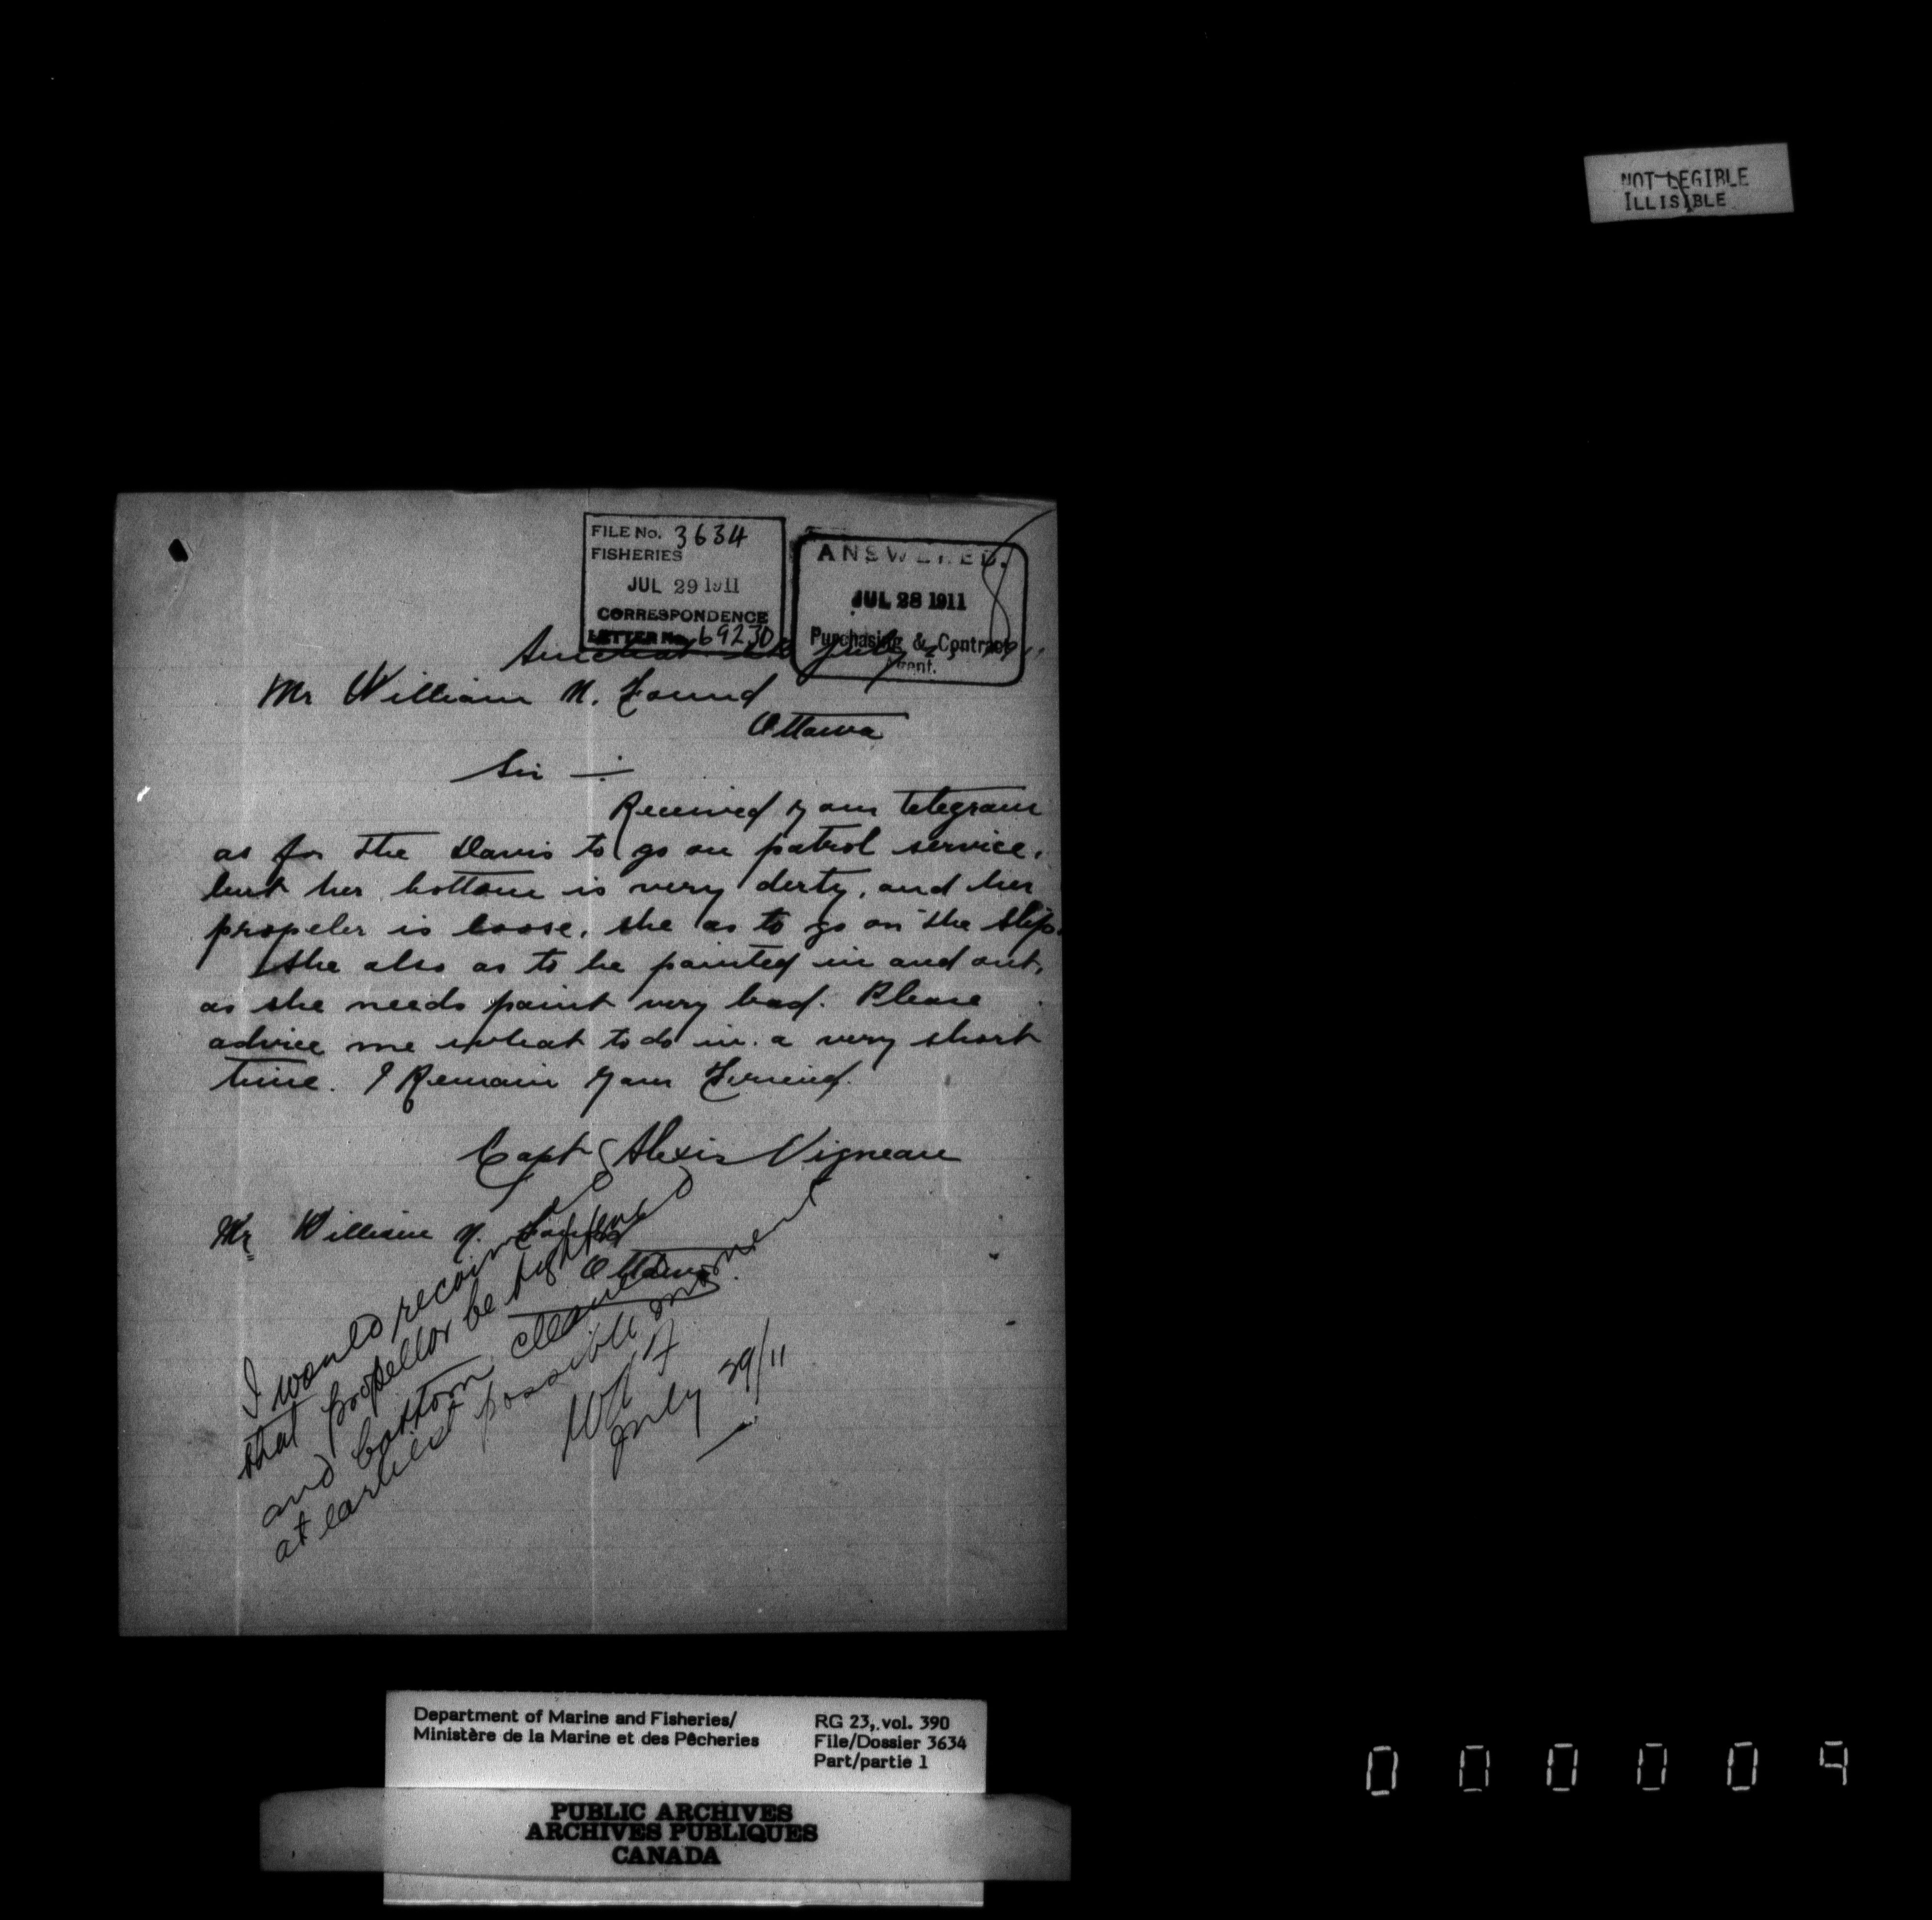 NOT LEGIBLE
ILLISIBLE
FILE No. 3634
FISHERIES
JUL 29 1911
CORRESPONDENCE
LETTER No. 69230
ANSWERED.
JUL 28 1911
Purchasing & Contract
Agent.
Arichat July
Mr William N. Found
Ottawa
Sir —
Received your telegram
as for the Davis to go on patrol service.
but her bottom is very derty, and her
propeler is loose. she as to go on the slip.
she also as to be painted in and out,
as she needs paint very bad. Please
advice me what to do in a very short
time. I Remain your Friend.
Capt Alexis Vigneau
Mr William N. Found
Ottawa
I would recommend
that propellor be tightened
and bottom cleaned
at earliest possible moment
July 29/11
Department of Marine and Fisheries/
Ministère de la Marine et des Pêcheries
RG 23, vol. 390
File/Dossier 3634
Part/partie 1
PUBLIC ARCHIVES
ARCHIVES PUBLIQUES
CANADA
000004